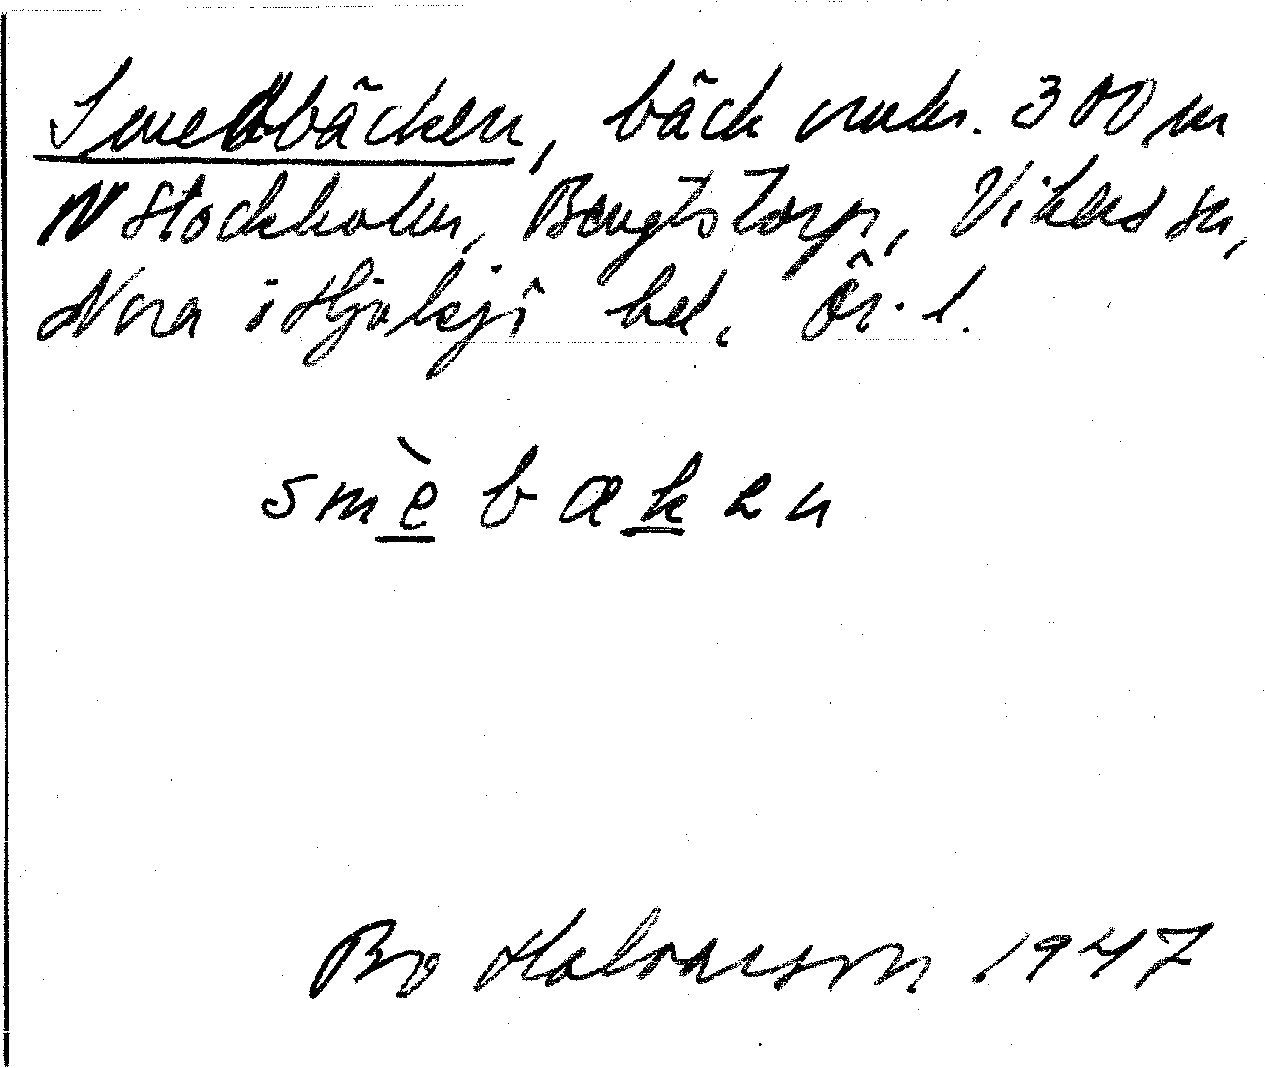 Smedbäcken, bäck omkr. 300 m
N Stockholm, Bengtstorp, Vikers sn,
Nora i Hjulsjö bel, Ör. l.
smèbækən
Bo Halvarson 1947